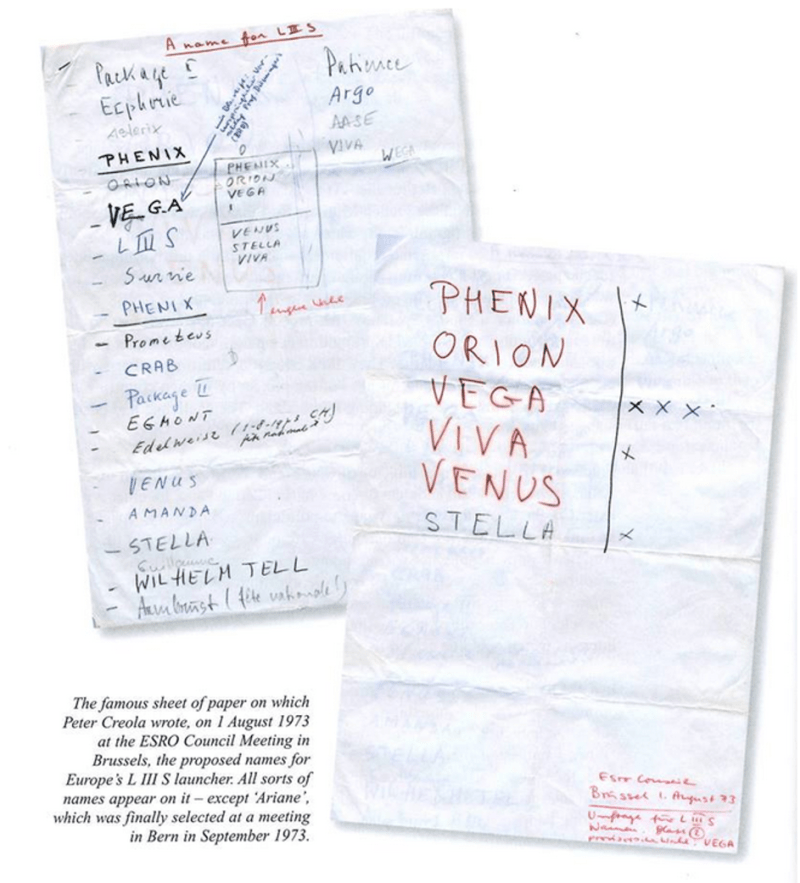 A name for L III S
- Package I
- Ecphorie
- Asterix
- PHENIX
- ORION
- VEGA
- L III S
- Survie
- PHENIX
- Prometeus
- CRAB
- Package II
- EGMONT
- Edelweiss (1-8-1973 CH)
- VENUS
- AMANDA
- STELLA
Guillaume
- WILHELM TELL
- Armbrust (fête nationale!)
Patience
Argo
AASE
VIVA
WEGA
PHENIX
ORION
VEGA
VENUS
STELLA
VIVA
↑ engere Wahl
PHENIX x
ORION
VEGA x x x
VIVA x
VENUS
STELLA x
ESRO Council
Brüssel 1. August 73
Umfrage für L III S
Namen. Blatt 2
provisorische Wahl: VEGA
The famous sheet of paper on which
Peter Creola wrote, on 1 August 1973
at the ESRO Council Meeting in
Brussels, the proposed names for
Europe's L III S launcher. All sorts of
names appear on it – except 'Ariane',
which was finally selected at a meeting
in Bern in September 1973.